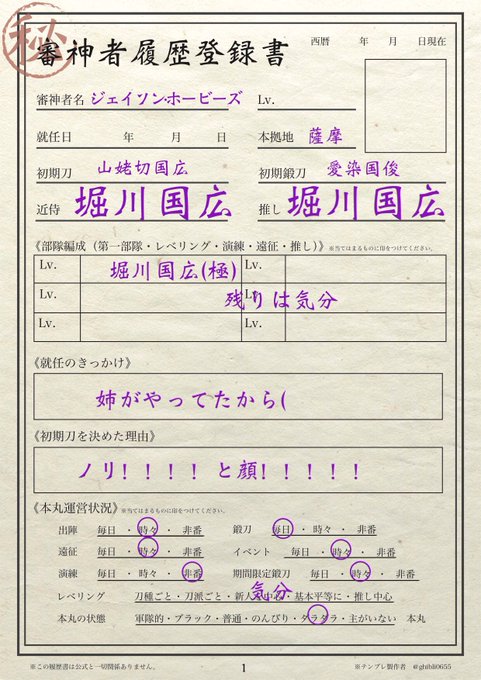 秘
審神者履歴登録書
西暦 年 月 日現在
審神者名 ジェイソン・ホービーズ Lv.
就任日 年 月 日 本拠地 薩摩
初期刀 山姥切国広 初期鍛刀 愛染国俊
近侍 堀川国広 推し 堀川国広
《部隊編成(第一部隊・レベリング・演練・遠征・推し)》※当てはまるものに印をつけてください。
Lv. 堀川国広(極) Lv.
Lv. 残りは気分 Lv.
Lv. Lv.
《就任のきっかけ》
姉がやってたから(
《初期刀を決めた理由》
ノリ!!!!と顔!!!!!
《本丸運営状況》※当てはまるものに印をつけてください。
出陣 毎日 ・ 時々 ・ 非番 鍛刀 毎日 ・ 時々 ・ 非番
遠征 毎日 ・ 時々 ・ 非番 イベント 毎日 ・ 時々 ・ 非番
演練 毎日 ・ 時々 ・ 非番 期間限定鍛刀 毎日 ・ 時々 ・ 非番
気分
レベリング 刀種ごと・刀派ごと・新人中心・基本平等に・推し中心
本丸の状態 軍隊的・ブラック・普通・のんびり・ダラダラ・主がいない 本丸
※この履歴書は公式と一切関係ありません。 1 ※テンプレ製作者 @ghibli0655